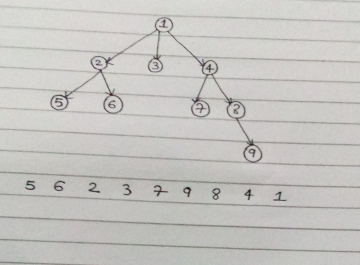 1
2 3 4
5 6 7 8
9
5 6 2 3 7 9 8 4 1